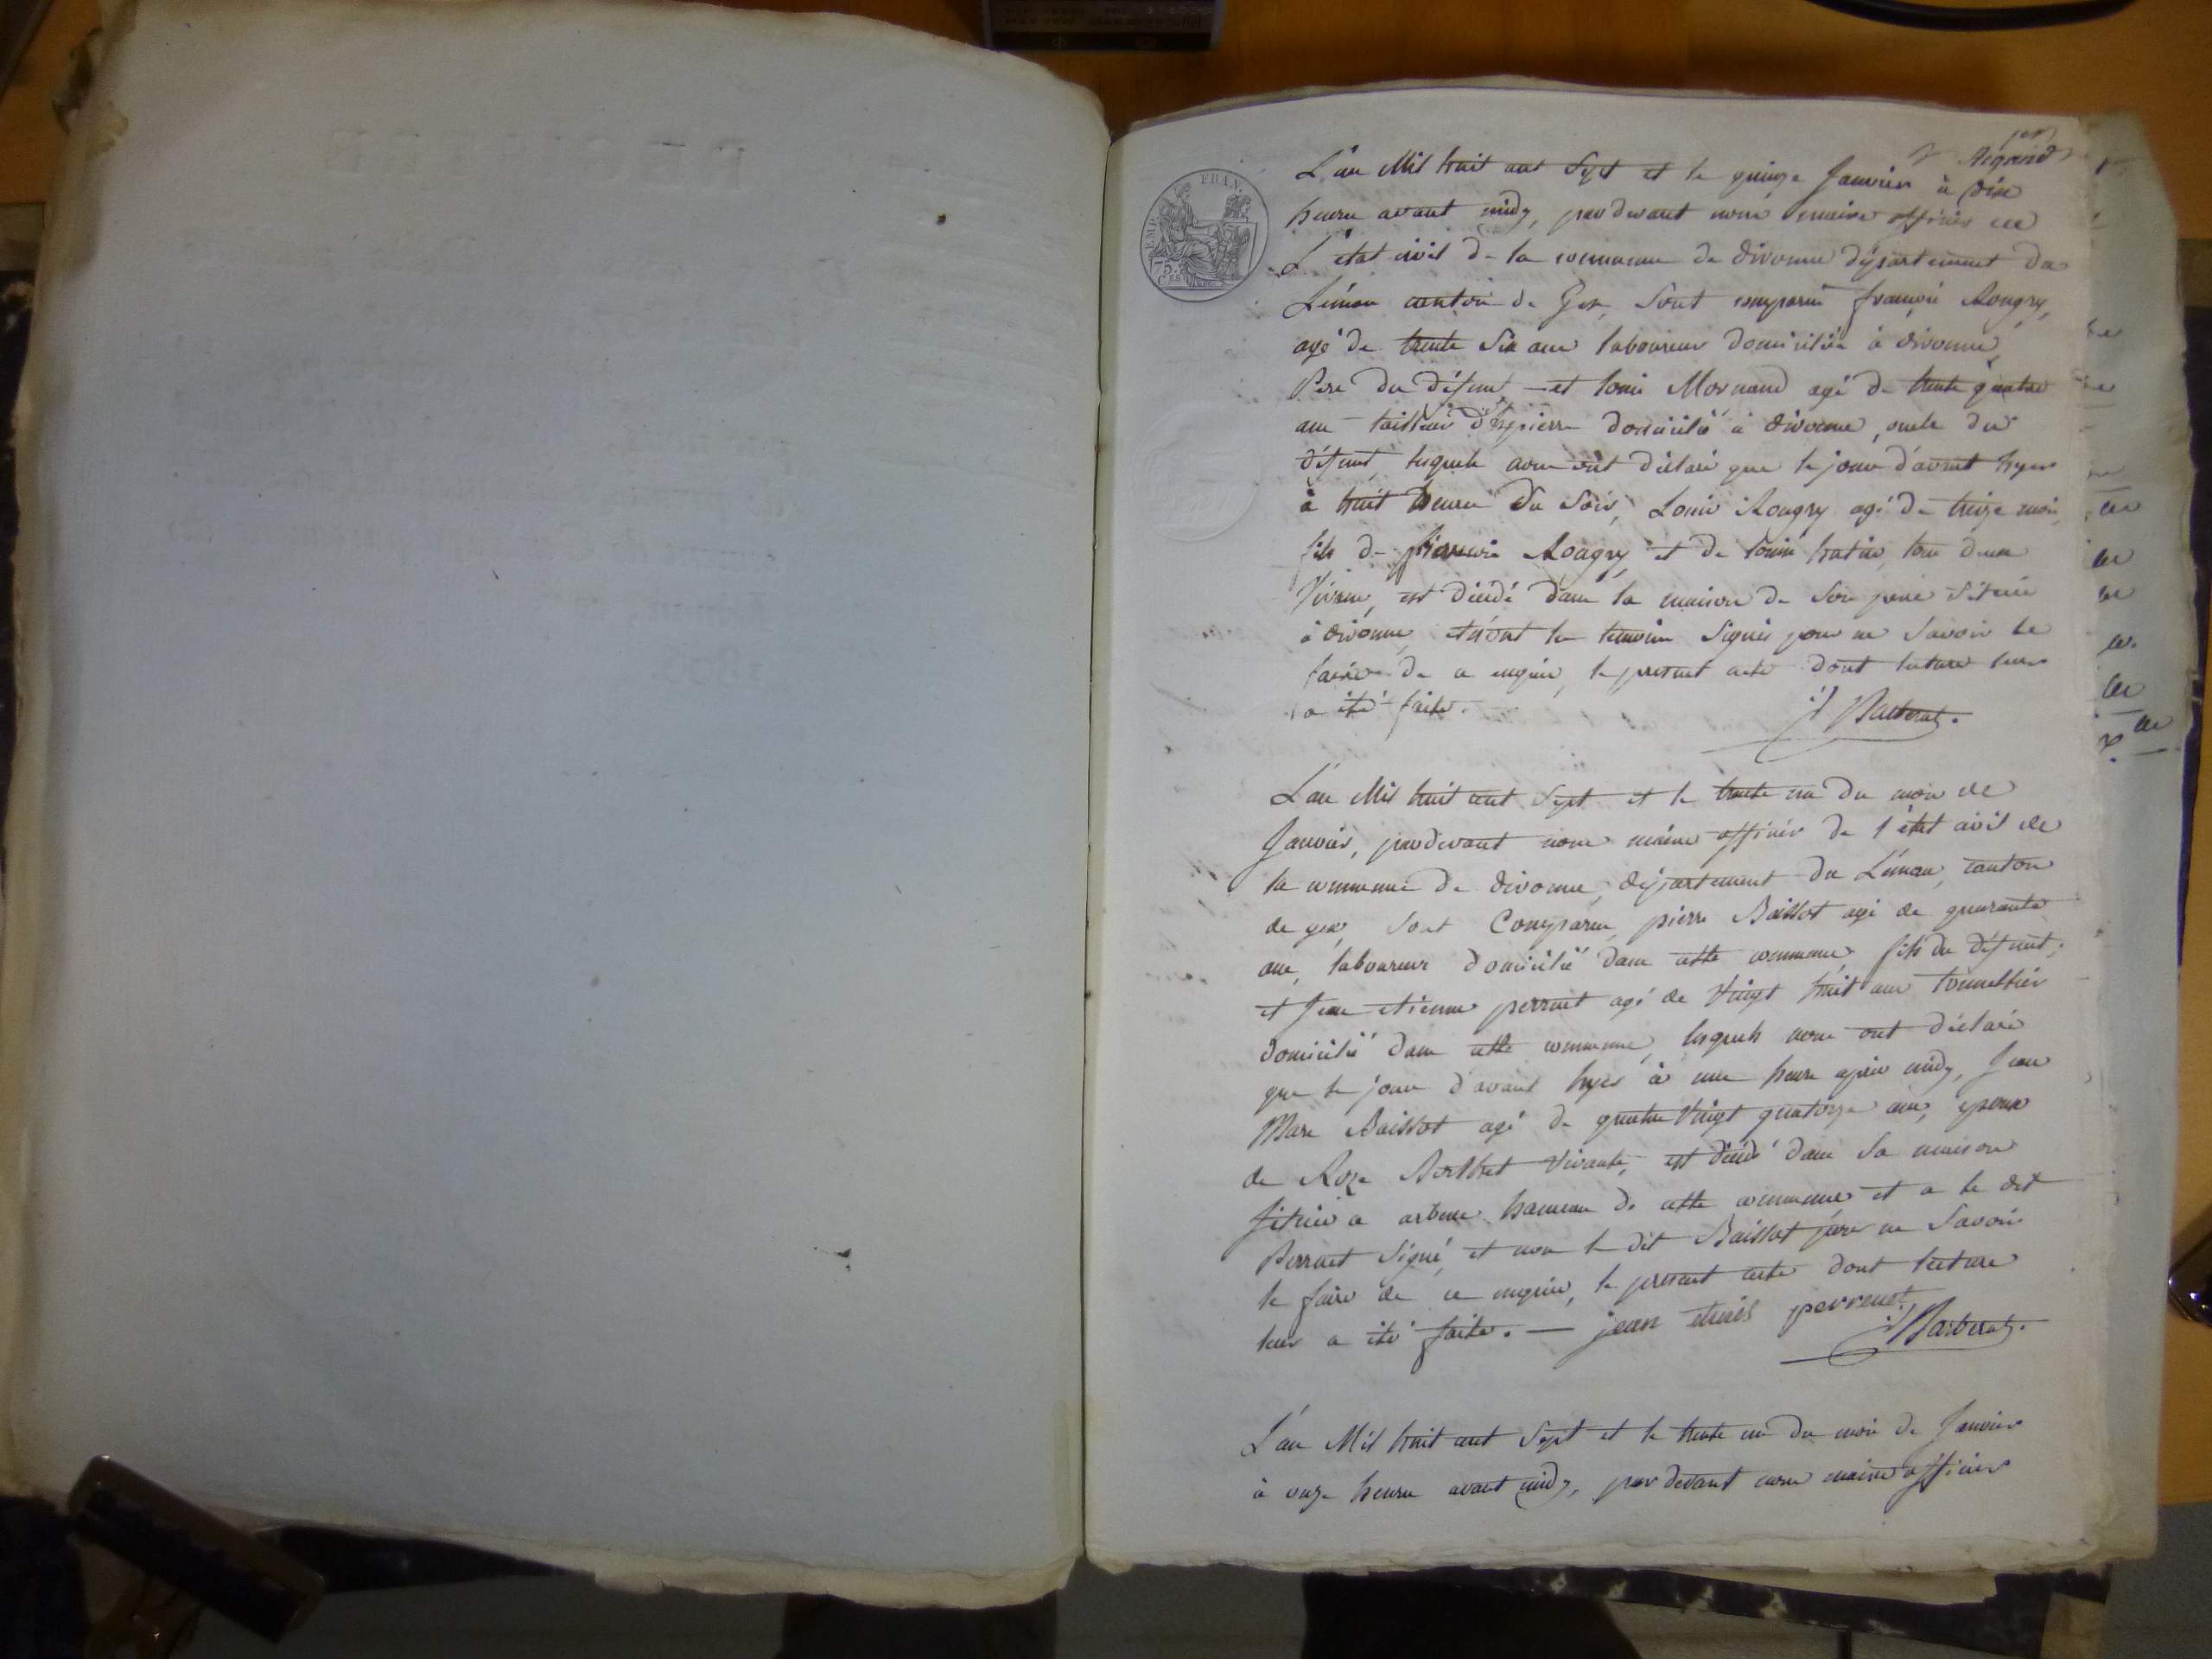 L'an Mil huit cent Sept et le quinze Janvier à dix
heures avant midy, pardevant nous maire officier de
L'état civil de la commune de divonne département du
Léman canton de Gex, sont comparus françois Rougny,
agé de trente Six ans laboureur domicilié à divonne,
Pere du défunt, et louis Mornand agé de trente quatre
ans tailleur de pierre domicilié à divonne, oncle du
défunt, lesquels nous ont déclaré que le jour d'avant hyer
à huit heures du Soir, Louis Rougny agé de treize mois,
fils de françois Rougny et de louise, tous deux
Vivans, est décédé dans la maison de son pere située
à divonne, et n'ont les temoins signés pour ne Savoir le
faire de ce enquis, le present acte dont lecture leur
a été faite.
L'an Mil huit cent Sept et le trente un du mois de
Janvier, pardevant nous maire officier de l'état civil de
la commune de divonne, département du Léman, canton
de gex, sont Comparus, pierre Baissot agé de quarante
ans, laboureur domicilié dans cette commune, fils du défunt,
et Jean etienne perrnet agé de Vingt huit ans tonnellier
domicilié dans cette commune, lesquels nous ont déclaré
que le jour d'avant hyer à une heure après midy, Jean
Marc Baissot agé de quatre Vingt quatorze ans, epoux
de Roze Berthet Vivante, est décédé dans sa maison
située à arbere hameau de cette commune et a le dit
Perrnet Signé, et non le dit Baissot pour ne Savoir
le faire de ce enquis, le present acte dont lecture
leur a été faite. — jean perrenet
L'an Mil huit cent Sept et le trente un du mois de Janvier
à onze heures avant midy, par devant nous maire officier